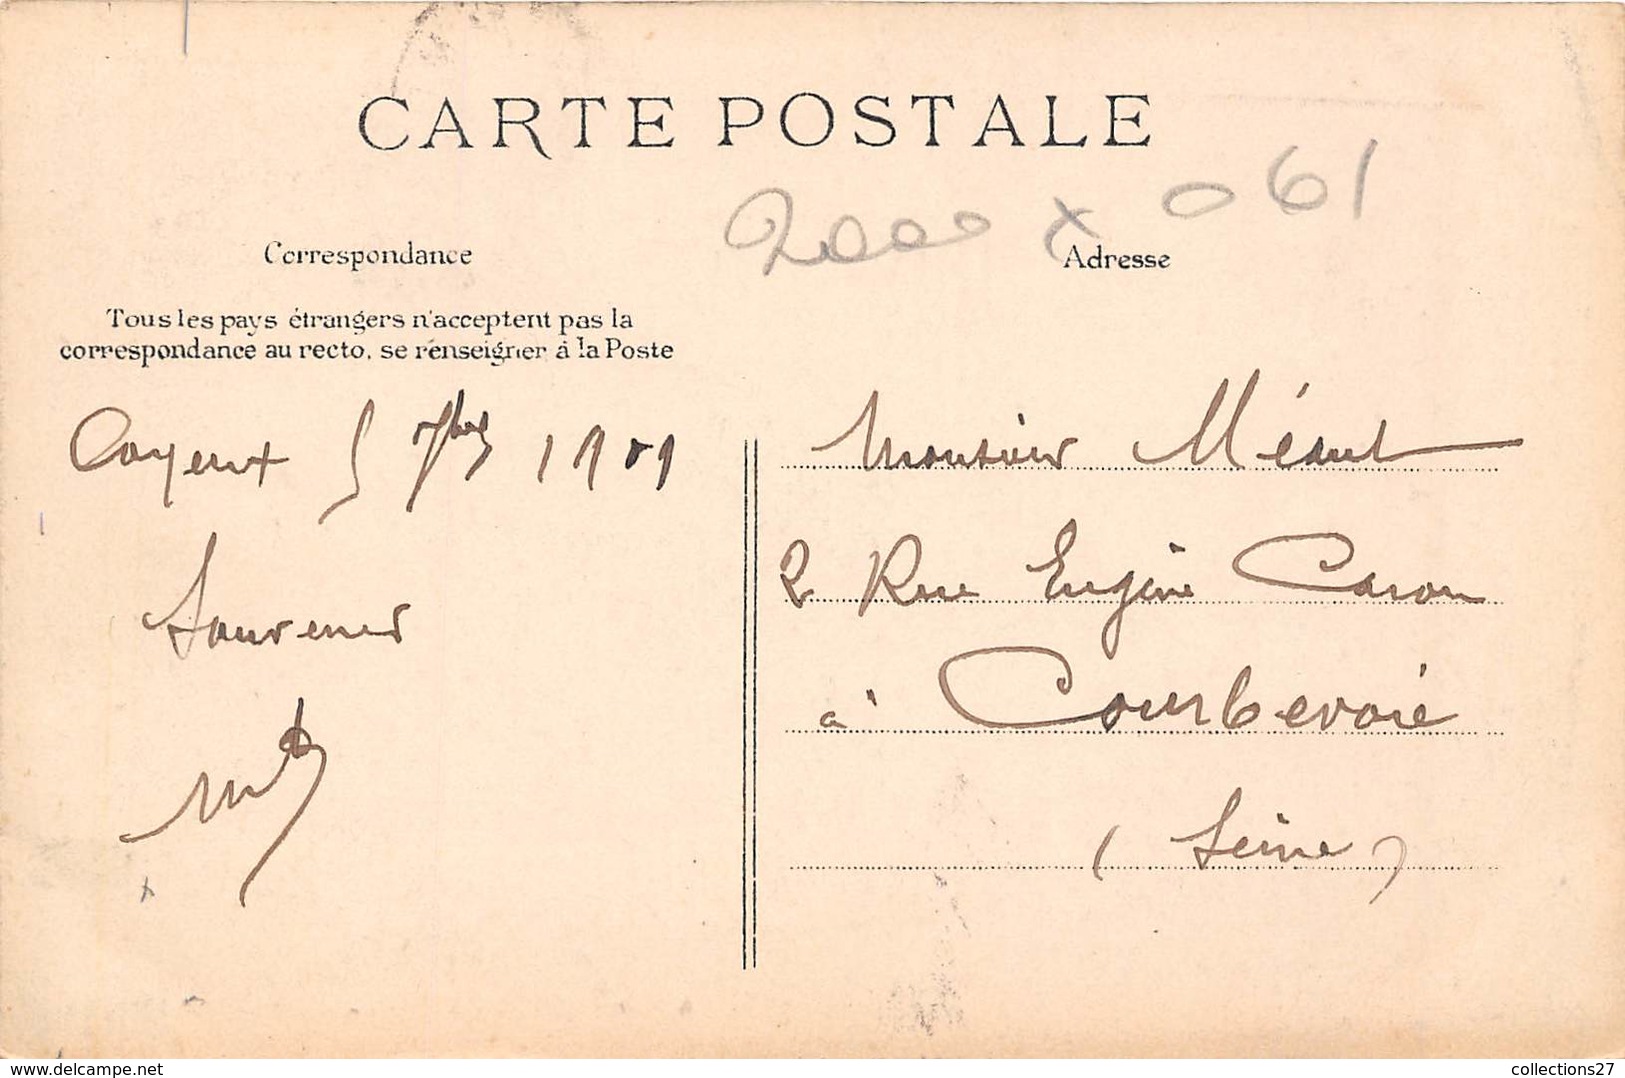 CARTE POSTALE
2000 x 061
Correspondance
Adresse
Tous les pays étrangers n'acceptent pas la
correspondance au recto, se renseigner à la Poste
Cayeux 5 7bre 1909
Souvenir
Monsieur
2 Rue Eugène Caron
à Courbevoie
(Seine)
delcampe.net
collections27